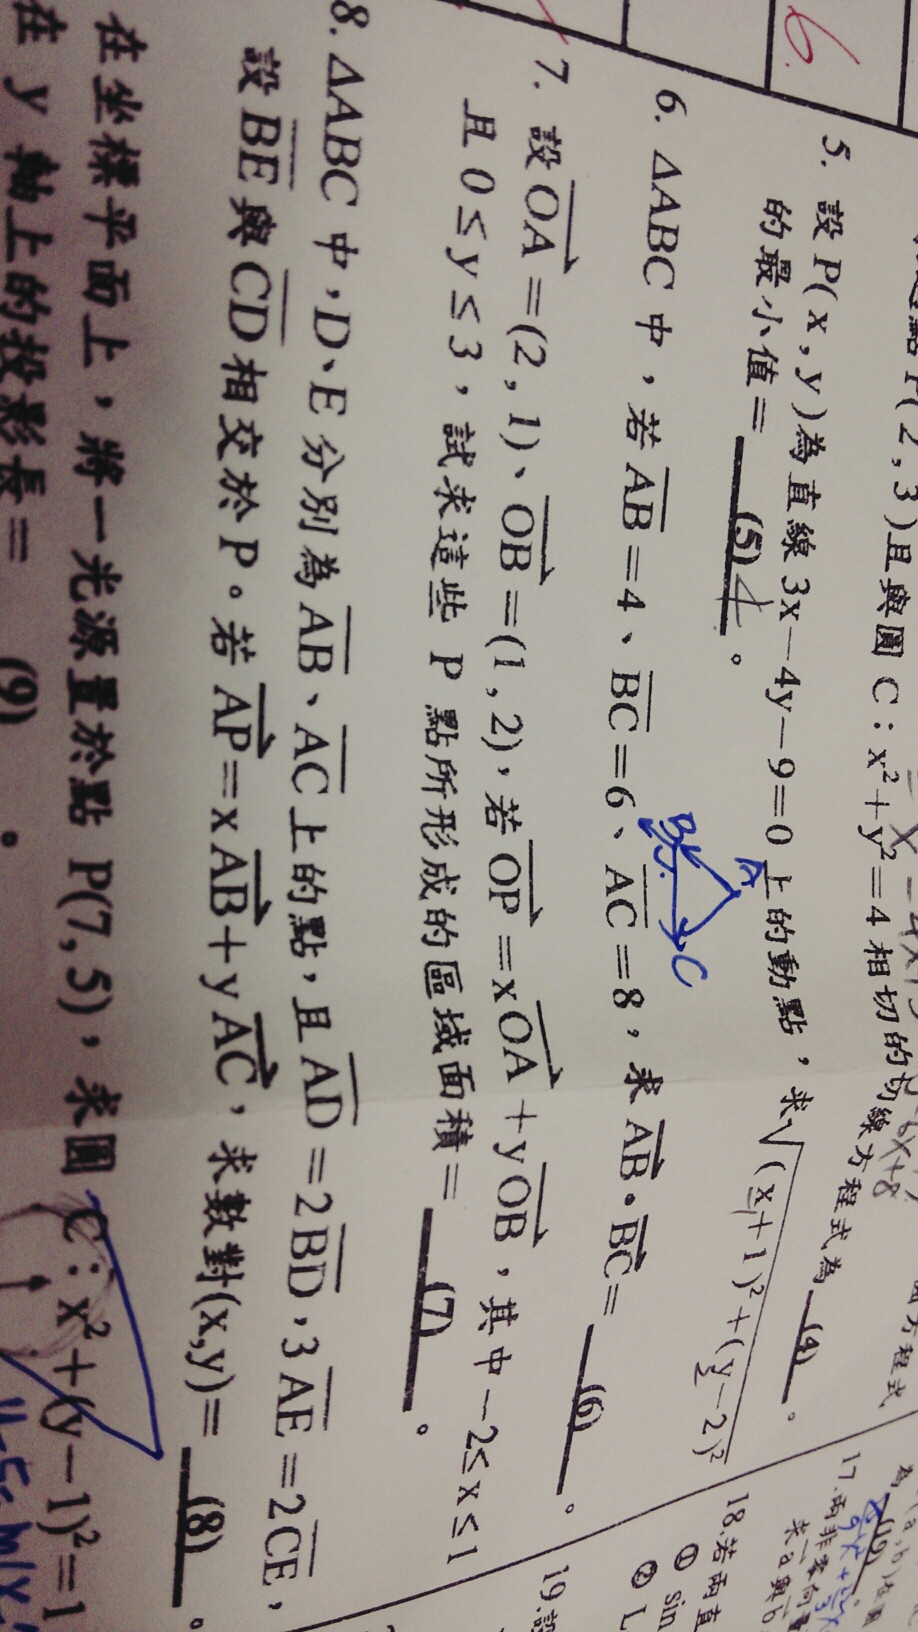 6.
P(2,3)且與圓 C:x²+y²=4 相切的切線方程式為 (4) 。
5. 設 P(x,y)為直線 3x-4y-9=0 上的動點,求√(x+1)²+(y-2)²
的最小值= (5) 4 。
A
B
C
6. ΔABC 中,若 AB=4、BC=6、AC=8,求 AB·BC= (6) 。
7. 設 OA=(2,1)、OB=(1,2),若 OP=xOA+yOB,其中 -2≤x≤1
且 0≤y≤3,試求這些 P 點所形成的區域面積= (7) 。
8. ΔABC 中,D、E 分別為 AB、AC 上的點,且 AD=2BD,3AE=2CE,
設 BE 與 CD 相交於 P。若 AP=xAB+yAC,求數對(x,y)= (8) 。
在坐標平面上,將一光源置於點 P(7,5),求圓 C:x²+(y-1)²=1
在 y 軸上的投影長= (9) 。
方程式
17.兩非零向量
求 a 與 b
18.若兩直
① sin
②
19.設